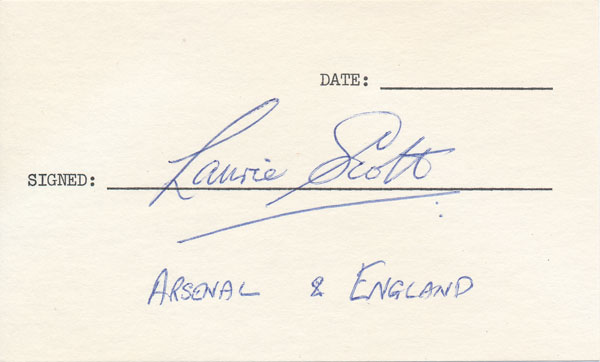 DATE:
SIGNED: Laurie Scott
ARSENAL & ENGLAND